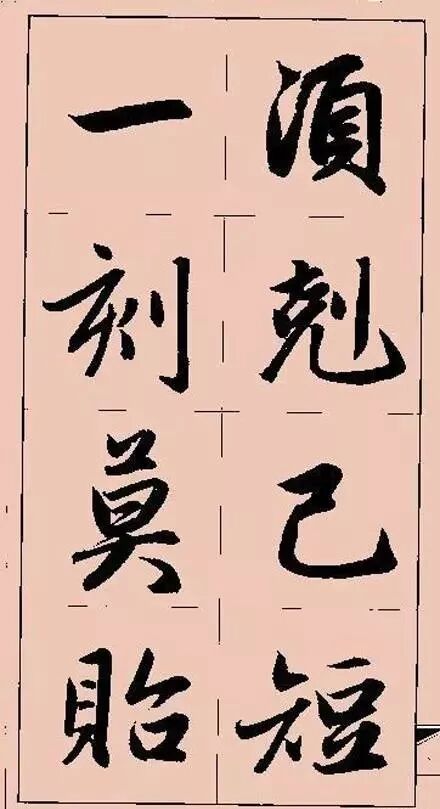 湏剋己短
一刻莫貽